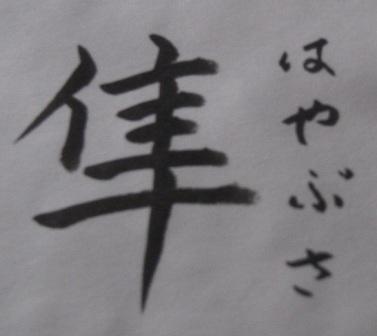 隼
はやぶさ